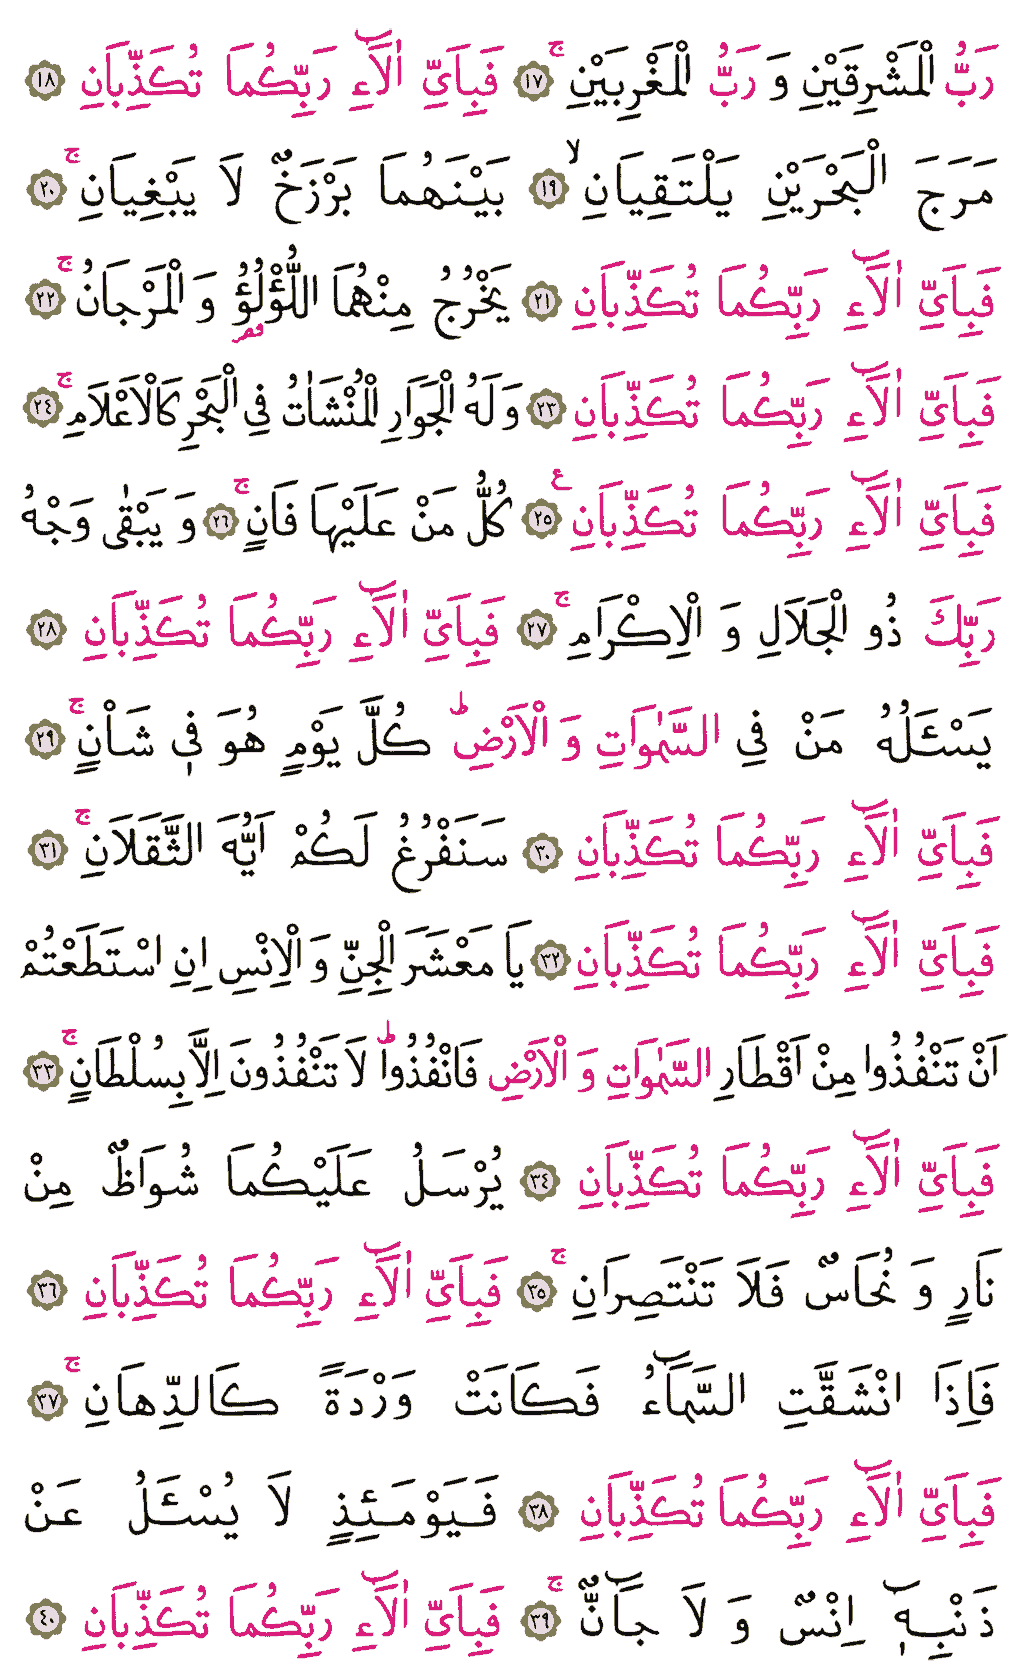 رَبُّ الْمَشْرِقَيْنِ وَ رَبُّ الْمَغْرِبَيْنِ ۚ ﴿١٧﴾ فَبِاَيِّ اٰلَٓاءِ رَبِّكُمَا تُكَذِّبَانِ ﴿١٨﴾
مَرَجَ الْبَحْرَيْنِ يَلْتَقِيَانِ ۙ ﴿١٩﴾ بَيْنَهُمَا بَرْزَخٌ لَا يَبْغِيَانِ ۚ ﴿٢٠﴾
فَبِاَيِّ اٰلَٓاءِ رَبِّكُمَا تُكَذِّبَانِ ﴿٢١﴾ يَخْرُجُ مِنْهُمَا اللُّؤْلُؤُ۬ وَ الْمَرْجَانُ ۚ ﴿٢٢﴾
فَبِاَيِّ اٰلَٓاءِ رَبِّكُمَا تُكَذِّبَانِ ﴿٢٣﴾ وَ لَهُ الْجَوَارِ الْمُنْشَاٰتُ فِي الْبَحْرِ كَالْاَعْلَامِ ۚ ﴿٢٤﴾
فَبِاَيِّ اٰلَٓاءِ رَبِّكُمَا تُكَذِّبَانِ ع ﴿٢٥﴾ كُلُّ مَنْ عَلَيْهَا فَانٍ ۚ ﴿٢٦﴾ وَ يَبْقٰى وَجْهُ
رَبِّكَ ذُو الْجَلَالِ وَ الْاِكْرَامِ ۚ ﴿٢٧﴾ فَبِاَيِّ اٰلَٓاءِ رَبِّكُمَا تُكَذِّبَانِ ﴿٢٨﴾
يَسْـَٔلُهُ مَنْ فِي السَّمٰوَاتِ وَ الْاَرْضِ ؕ كُلَّ يَوْمٍ هُوَ فٖي شَاْنٍ ۚ ﴿٢٩﴾
فَبِاَيِّ اٰلَٓاءِ رَبِّكُمَا تُكَذِّبَانِ ﴿٣٠﴾ سَنَفْرُغُ لَكُمْ اَيُّهَ الثَّقَلَانِ ۚ ﴿٣١﴾
فَبِاَيِّ اٰلَٓاءِ رَبِّكُمَا تُكَذِّبَانِ ﴿٣٢﴾ يَا مَعْشَرَ الْجِنِّ وَ الْاِنْسِ اِنِ اسْتَطَعْتُمْ
اَنْ تَنْفُذُوا مِنْ اَقْطَارِ السَّمٰوَاتِ وَ الْاَرْضِ فَانْفُذُوا ؕ لَا تَنْفُذُونَ اِلَّا بِسُلْطَانٍ ۚ ﴿٣٣﴾
فَبِاَيِّ اٰلَٓاءِ رَبِّكُمَا تُكَذِّبَانِ ﴿٣٤﴾ يُرْسَلُ عَلَيْكُمَا شُوَاظٌ مِنْ
نَارٍ وَ نُحَاسٌ فَلَا تَنْتَصِرَانِ ۚ ﴿٣٥﴾ فَبِاَيِّ اٰلَٓاءِ رَبِّكُمَا تُكَذِّبَانِ ﴿٣٦﴾
فَاِذَا انْشَقَّتِ السَّمَٓاءُ فَكَانَتْ وَرْدَةً كَالدِّهَانِ ۚ ﴿٣٧﴾
فَبِاَيِّ اٰلَٓاءِ رَبِّكُمَا تُكَذِّبَانِ ﴿٣٨﴾ فَيَوْمَئِذٍ لَا يُسْـَٔلُ عَنْ
ذَنْبِهٖٓ اِنْسٌ وَ لَا جَٓانٌّ ۚ ﴿٣٩﴾ فَبِاَيِّ اٰلَٓاءِ رَبِّكُمَا تُكَذِّبَانِ ﴿٤٠﴾